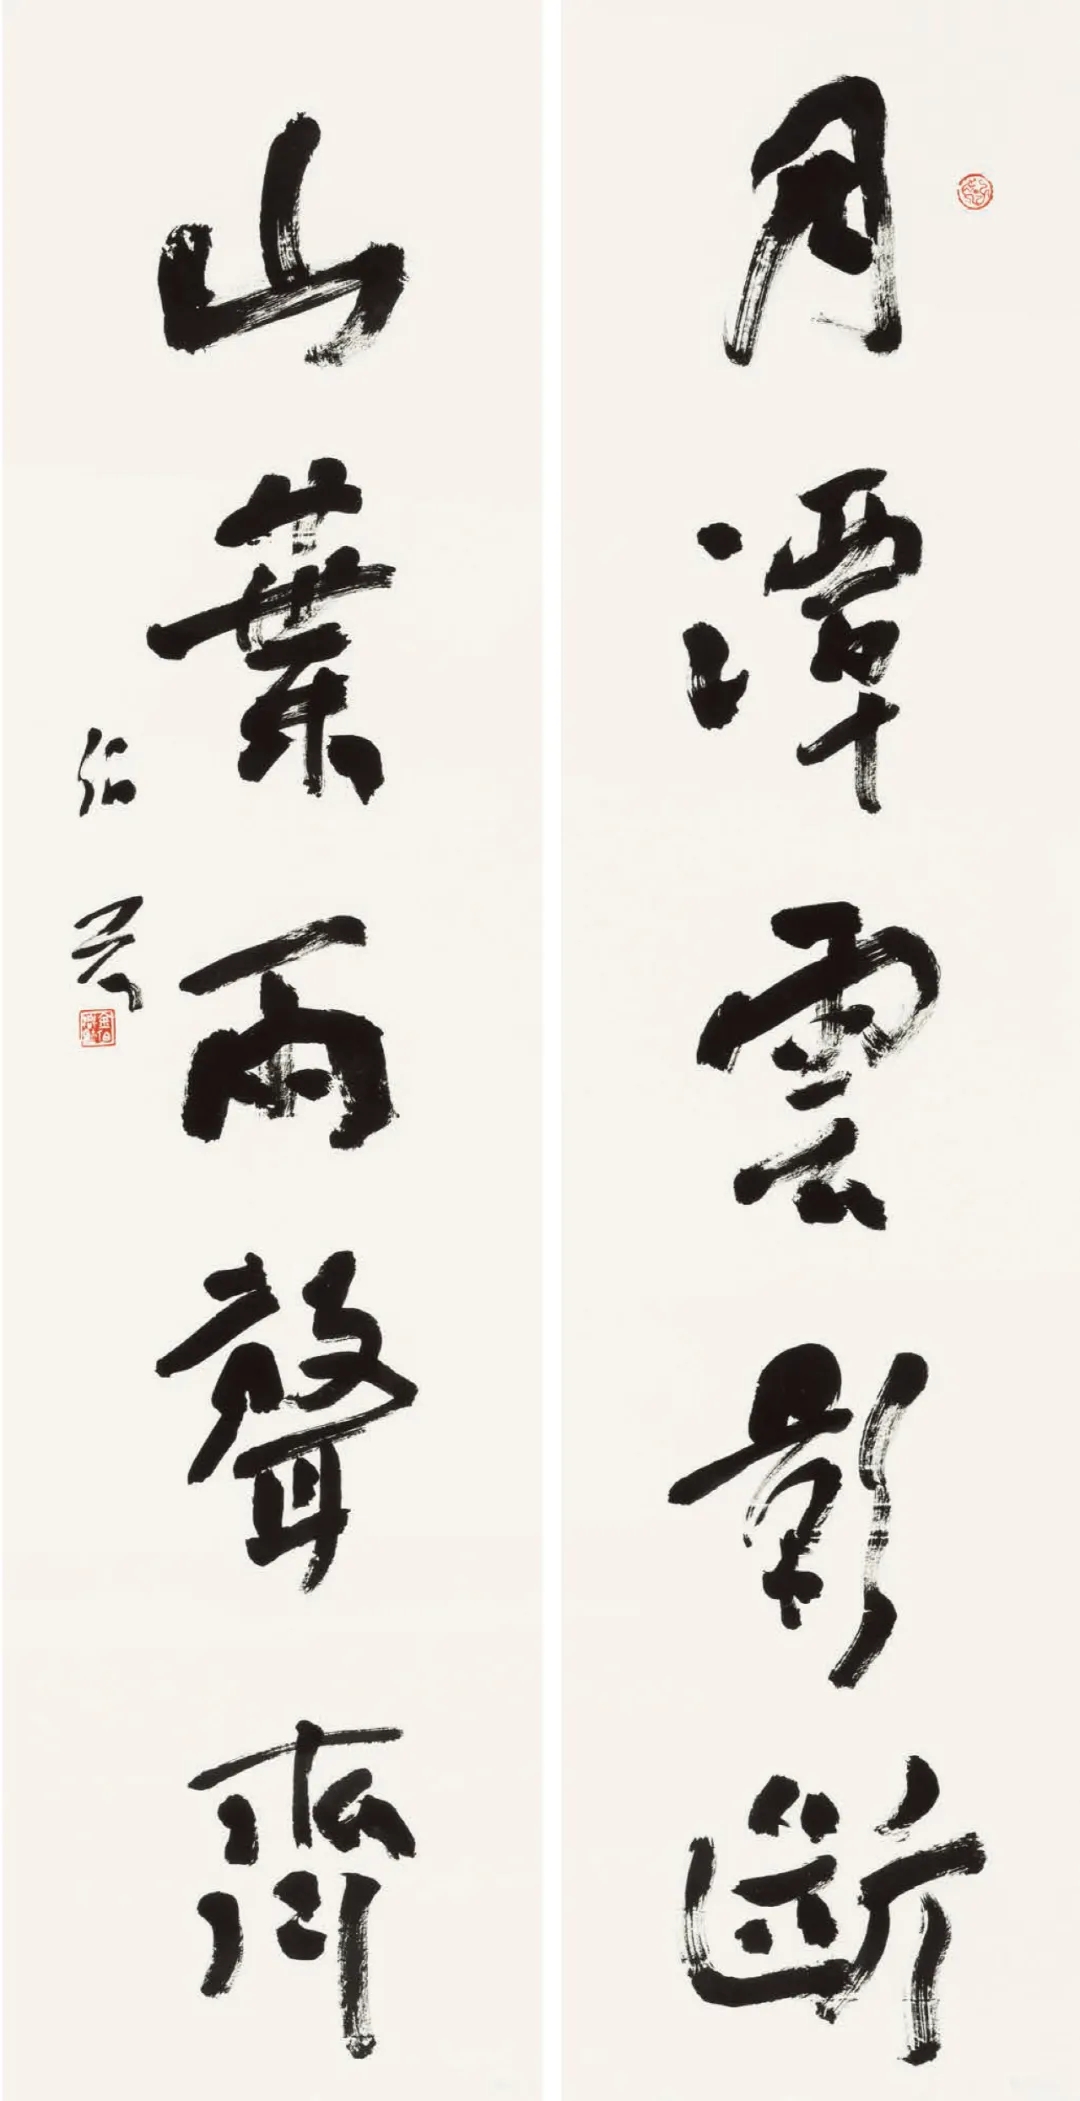 月潭雲影斷
山葉雨聲齊
伯興